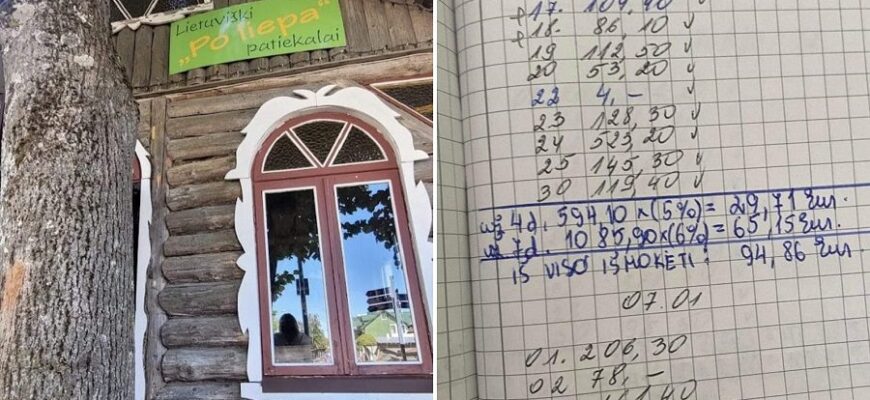 Lietuviški
„Po liepa“
patiekalai
18. 86,10 v
19 112,50 v
20 53,20 v
22 4,- v
23 128,30 v
24 523,20 v
25 145,30 v
30 119,40 v
už 4d. 594,10 x (5%) = 29,71 Eur.
už 7d. 1085,90x(6%) = 65,15 Eur.
IŠ VISO IŠMOKĖTI: 94,86 Eur.
07.01
01. 206,30
02 78,-